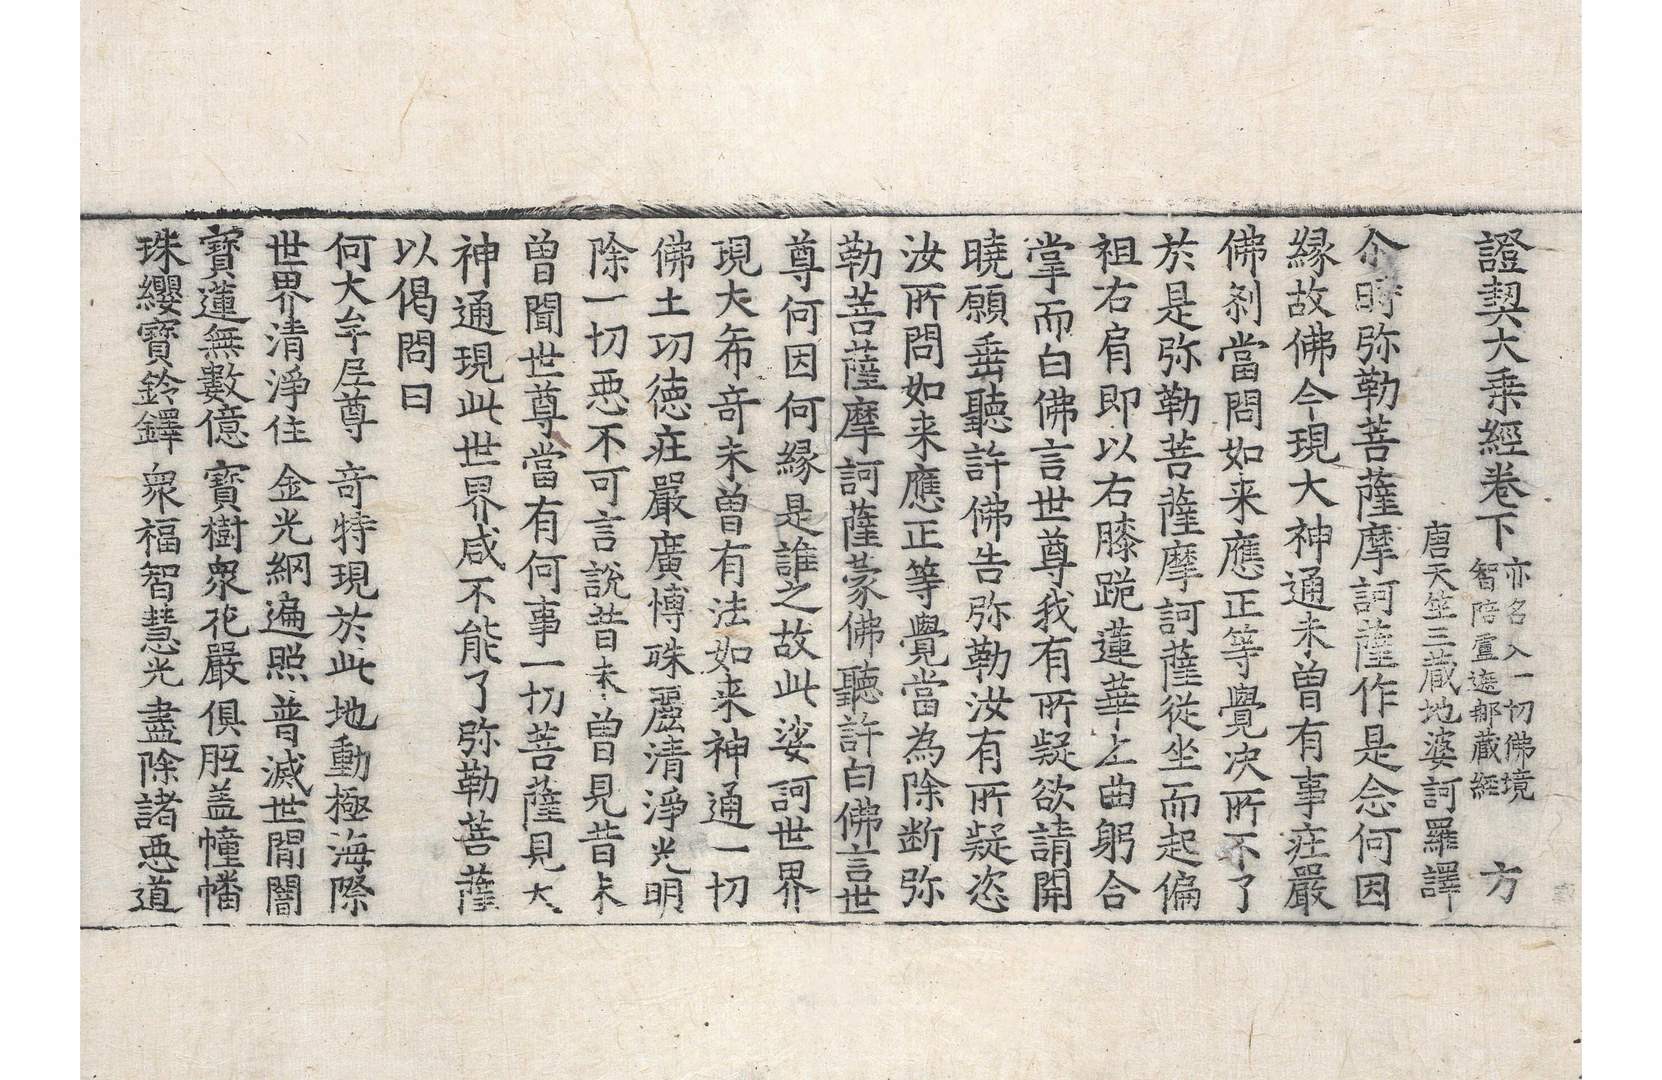 證契大乘經卷下 亦名入一切佛境智陪盧遮那藏經 方
唐天竺三藏地婆訶羅譯
尒時弥勒菩薩摩訶薩作是念何因
緣故佛今現大神通未曾有事庄嚴
佛剎當問如来應正等覺决所不了
於是弥勒菩薩摩訶薩從坐而起偏
袒右肩即以右膝跪蓮華上曲躬合
掌而白佛言世尊我有所疑欲請開
曉願垂聽許佛告弥勒汝有所疑恣
汝所問如来應正等覺當為除断弥
勒菩薩摩訶薩蒙佛聽許白佛言世
尊何因何緣是誰之故此娑訶世界
現大希竒未曾有法如来神通一切
佛土功徳庄嚴廣博殊麗清淨光明
除一切惡不可言說昔未曾見昔未
曾聞世尊當有何事一切菩薩見大
神通現此世界咸不能了弥勒菩薩
以偈問曰
何大牟尼尊 竒特現於此 地動極海際
世界清淨住 金光網遍照 普滅世間闇
寶蓮無數億 寶樹衆花嚴 俱胝盖幢幡
珠纓寶鈴鐸 衆福智慧光 盡除諸惡道